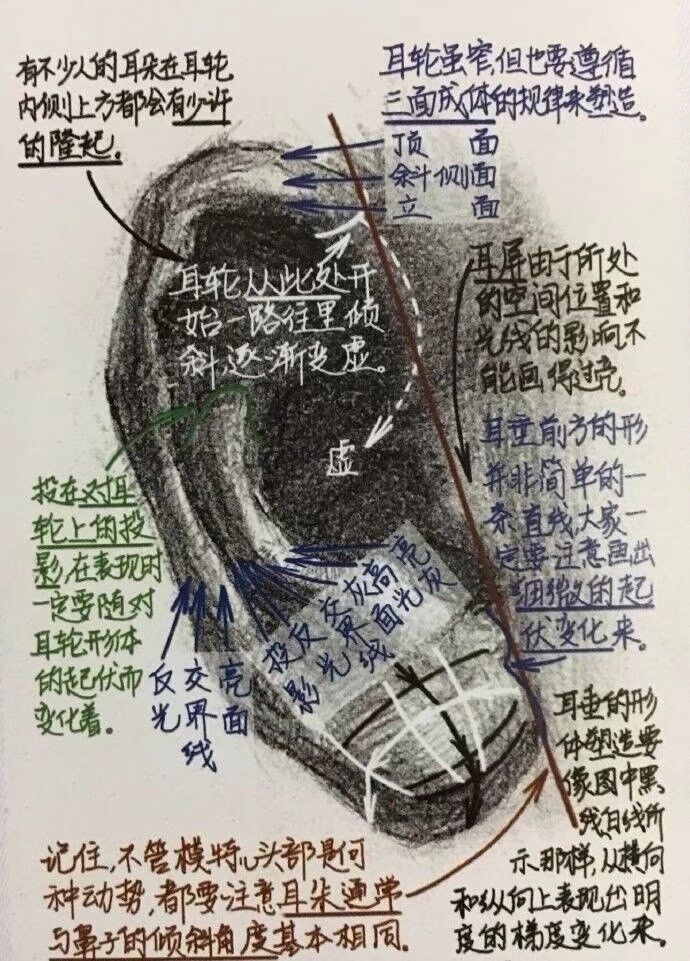 有不少人的耳朵在耳轮
内侧上方都会有少许
的隆起。
耳轮虽窄,但也要遵循
三面成体的规律来塑造。
顶面
斜侧面
立面
耳轮从此处开
始一路往里倾
斜逐渐变虚。
虚
耳屏由于所处
的空间位置和
光线的影响不
能画得过亮。
耳垂前方的形
并非简单的一
条直线大家一
定要注意画出
细微的起
伏变化来。
投在对耳
轮上的投
影,在表现时
一定要随对
耳轮形体
的起伏而
变化着。
反光
交界线
亮面
投影
反光
交界线
灰面
高光
亮灰
耳垂的形
体塑造要
像图中黑
线白线所
示那样,从横向
和纵向上表现出明
度的梯度变化来。
记住,不管模特儿头部是何
种动势,都要注意耳朵通常
与鼻子的倾斜角度基本相同.